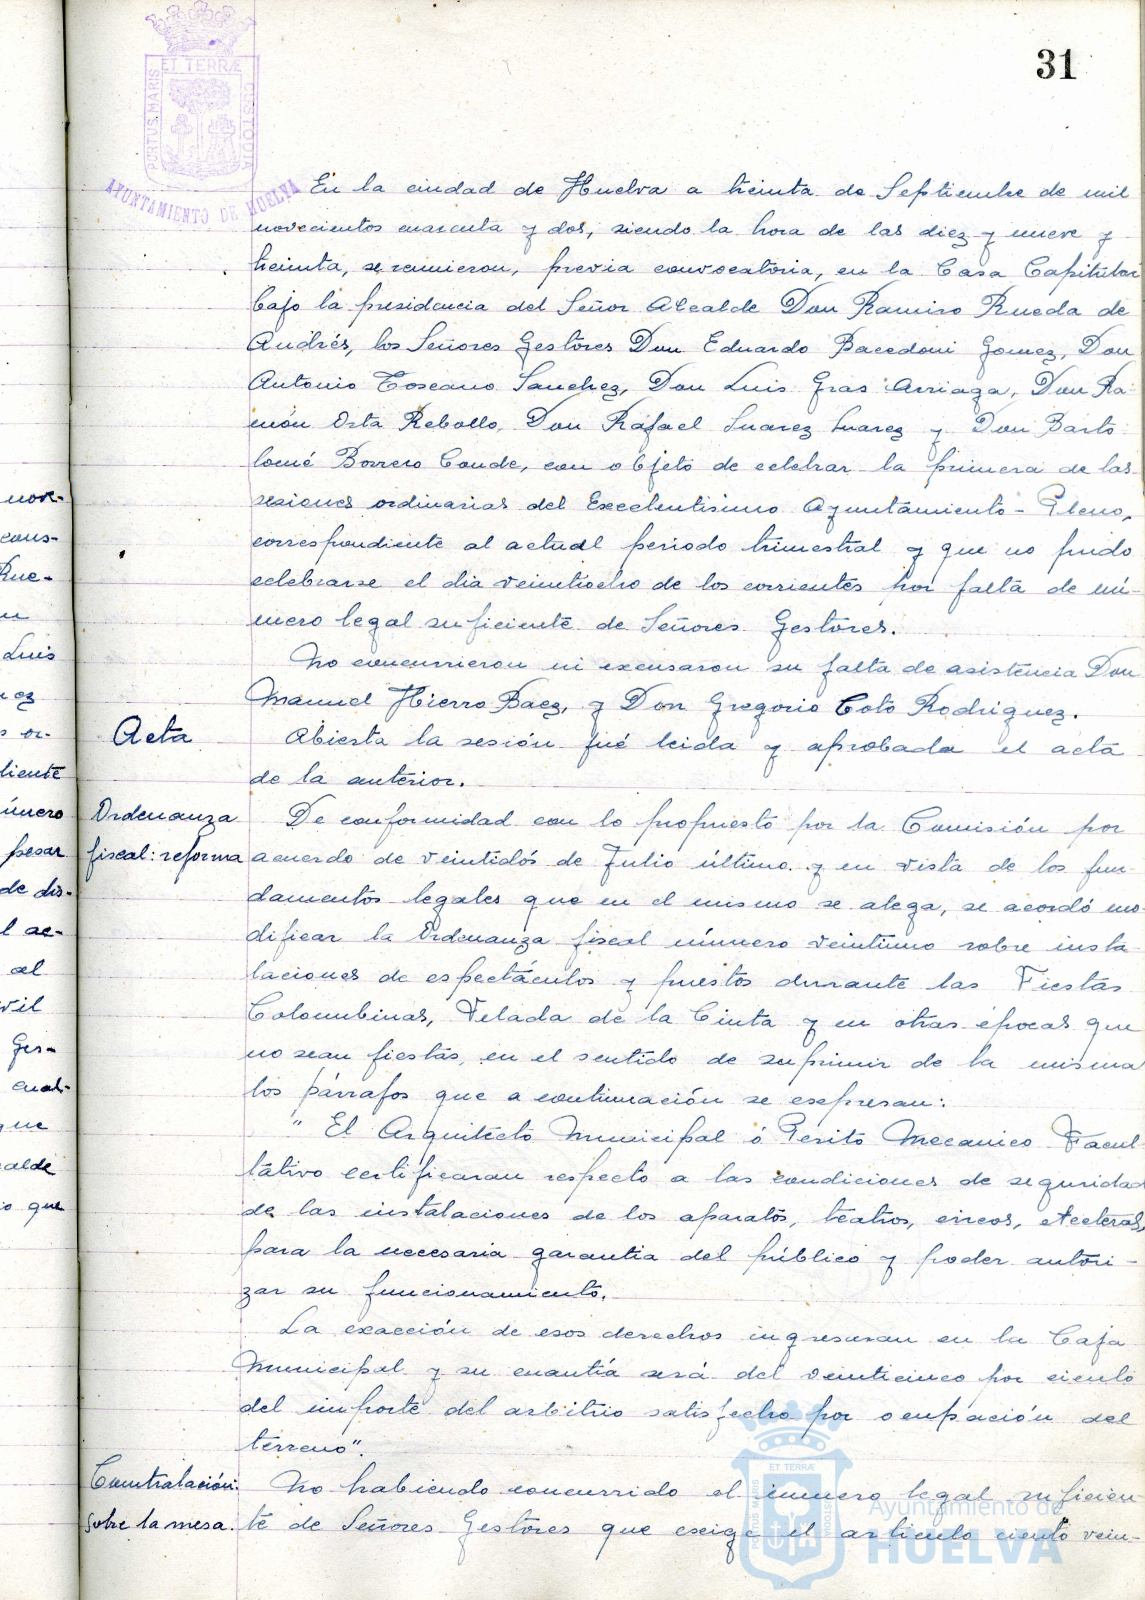 31
ET TERRÆ
PORTUS MARIS
CUSTODIA
AYUNTAMIENTO DE HUELVA
En la ciudad de Huelva a treinta de Septiembre de mil
novecientos cuarenta y dos, siendo la hora de las diez y nueve y
treinta, se reunieron, previa convocatoria, en la Casa Capitular
bajo la presidencia del Señor Alcalde Don Ramiro Rueda de
Andrés, los Señores Gestores Don Eduardo Bacedoni Gomez, Don
Antonio Toscano Sanchez, Don Luis Gras Arriaga, Don Ra-
món Orta Rebollo, Don Rafael Suarez Suarez y Don Barto-
lomé Borrero Conde, con objeto de celebrar la primera de las
sesiones ordinarias del Excelentisimo Ayuntamiento-Pleno,
correspondiente al actual periodo trimestral y que no pudo
celebrarse el dia veintiocho de los corrientes por falta de nú-
mero legal suficiente de Señores Gestores.
No concurrieron ni excusaron su falta de asistencia Don
Manuel Hierro Baez, y Don Gregorio Coto Rodriguez.
Acta
Abierta la sesión fué leida y aprobada el acta
de la anterior.
Ordenanza
fiscal: reforma
De conformidad con lo propuesto por la Comisión por
acuerdo de veintidós de Julio último y en vista de los fun-
damentos legales que en el mismo se alega, se acordó mo-
dificar la Ordenanza fiscal número veintiuno sobre insta-
laciones de espectáculos y puestos durante las Fiestas
Colombinas, Velada de la Cinta y en otras épocas que
no sean fiestas, en el sentido de suprimir de la misma
los párrafos que a continuación se expresan:
" El Arquitecto Municipal ó Perito Mecanico Facul-
tativo certificaran respecto a las condiciones de seguridad
de las instalaciones de los aparatos, teatros, circos, etceteras,
para la necesaria garantia del público y poder autori-
zar su funcionamiento.
La exacción de esos derechos ingresaran en la Caja
Municipal y su cuantía será del veinticinco por ciento
del importe del arbitrio satisfecho por ocupación del
terreno".
Contratación:
Sobre la mesa.
No habiendo concurrido el número legal suficien-
te de Señores Gestores que exige el articulo ciento vein-
nove-
cons-
Rue-
Luis
ez
or-
diente
número
pesar
de dis-
l ac-
al
vil
Ges-
cual-
que
calde
io que
ET TERRÆ
PORTUS MARIS
CUSTODIA
Ayuntamiento de
HUELVA